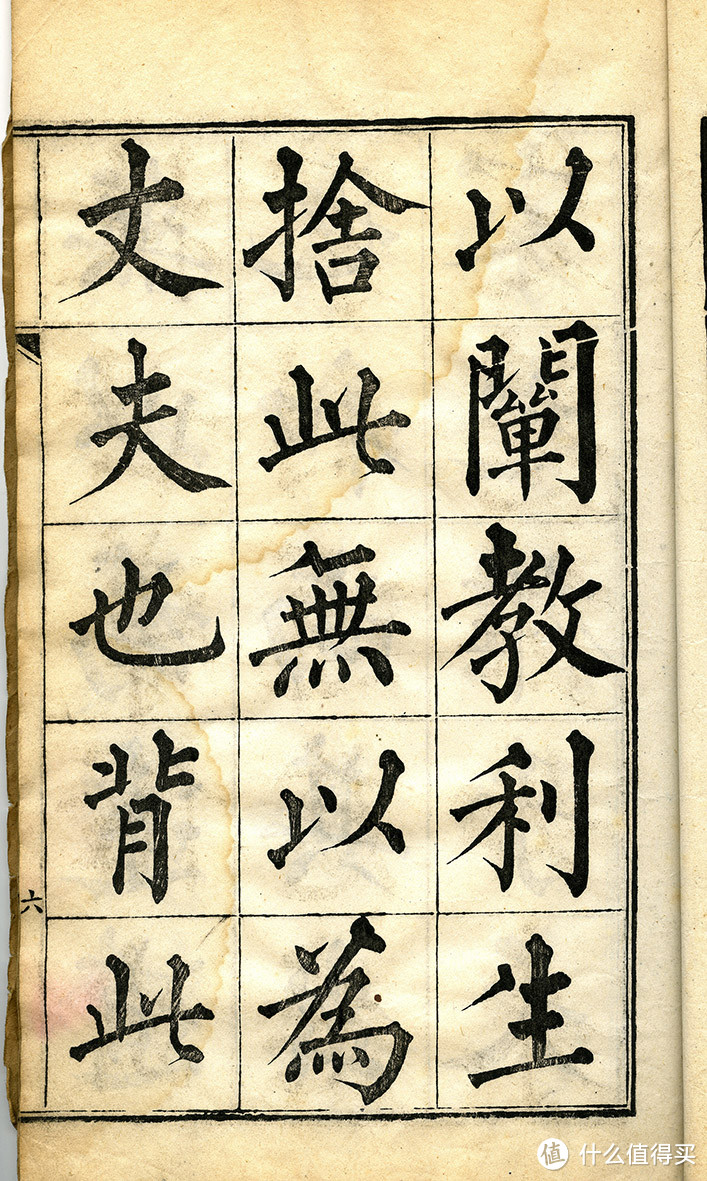 以闡教利生
捨此無以為
丈夫也背此
六
值 什么值得买